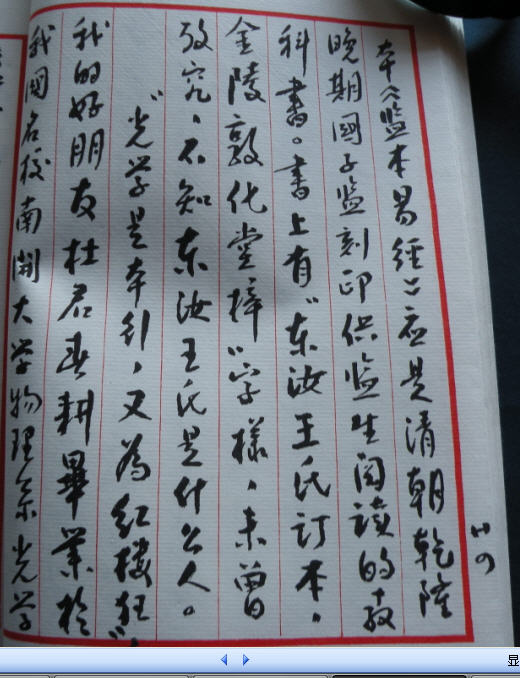 本《监本易經》应是清朝乾隆
晚期國子监刻印供监生阅读的教
科書。書上有“东汝王氏订本，
金陵敦化堂梓”字樣，未曾
攷究，不知东汝王氏是什么人。
“光学是本行，又為红樓狂”，
我的好朋友杜君春耕畢業於
我國名校南開大学物理系光学
显